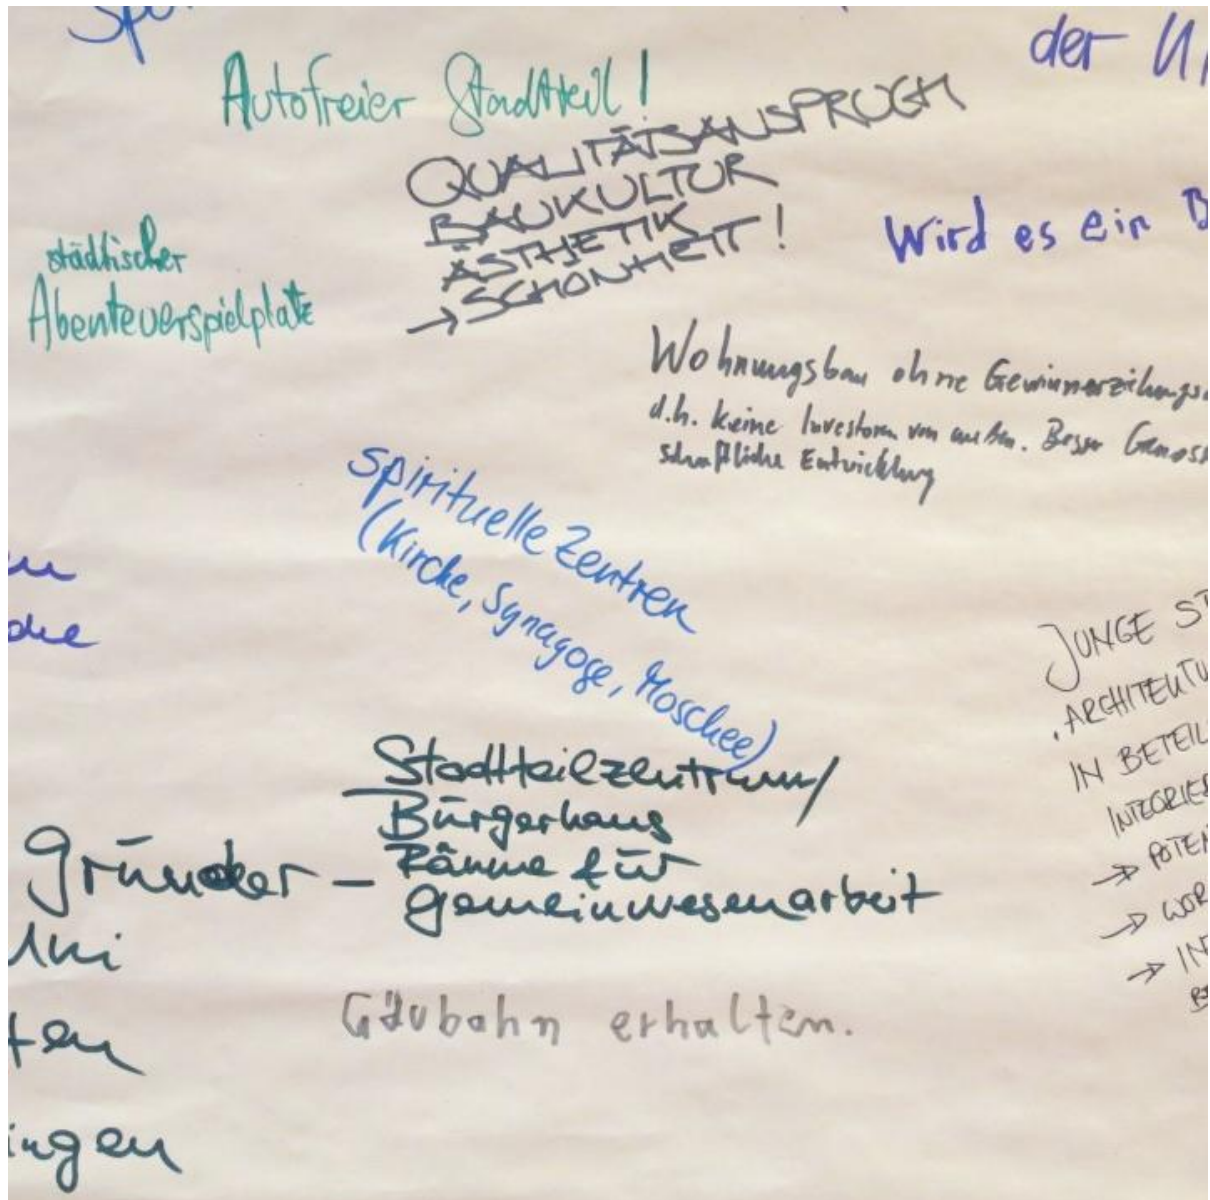 der
Autofreier Stadtteil!
QUALITÄTSANSPRUCH
BAUKULTUR
ÄSTHETIK
→ SCHÖNHEIT!
Wird es ein B
städtischer
Abenteuerspielplatz
Wohnungsbau ohne
d.h. keine Investoren von außen. Besser Genoss
schaftliche Entwicklung
spirituelle Zentren
(Kirche, Synagoge, Moschee)
JUNGE ST
IN BETEIL
→ POTEN
→ WOR
→ IN
Stadtteilzentrum/
Bürgerhaus
Räume für
Gemeinwesenarbeit
Gründer –
Uni
ten
ingen
Gäubahn erhalten.